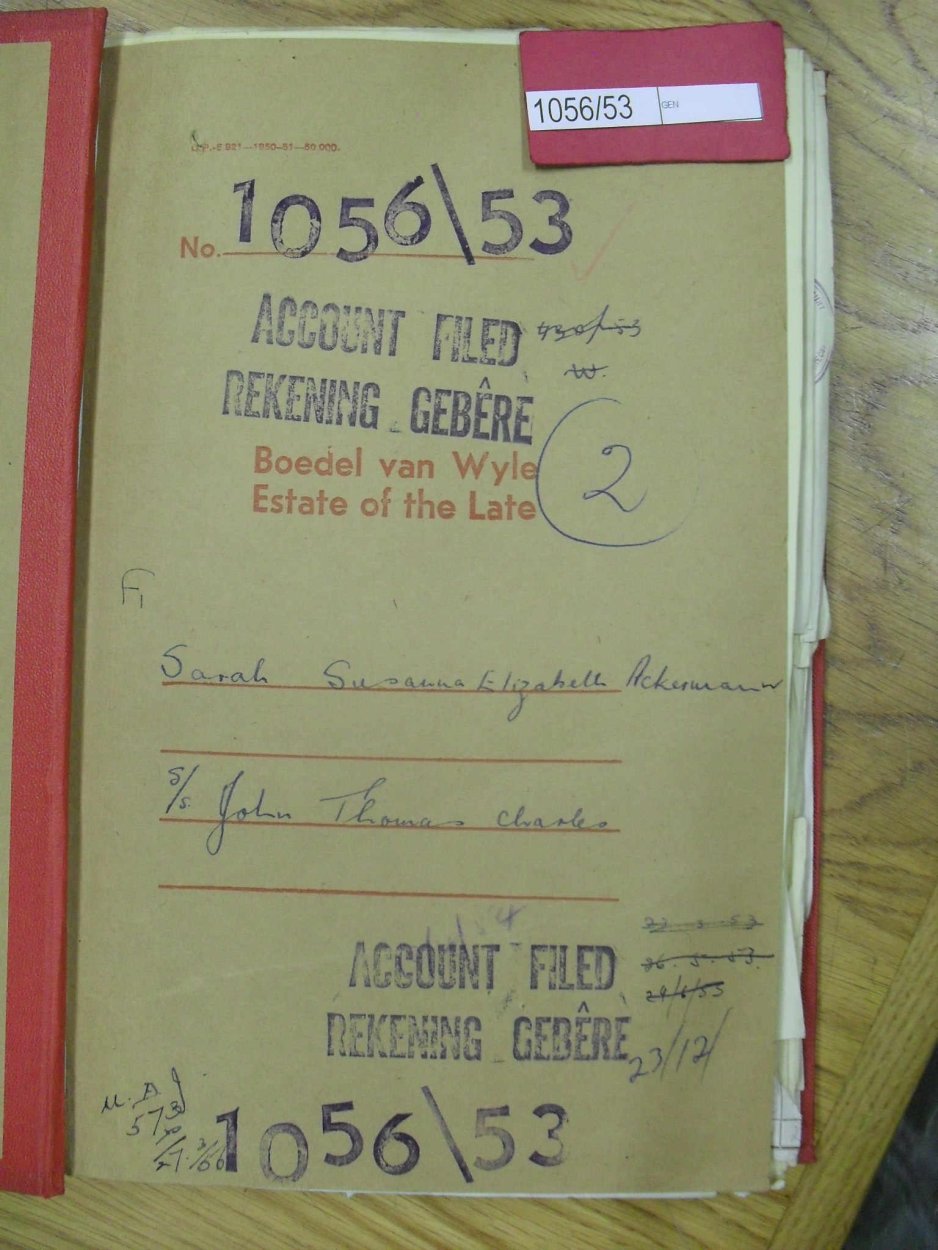 1056/53 GEN
G.P.-S.921—1950-51—50.000.
No. 1056\53
ACCOUNT FILED
REKENING GEBÊRE
W.
Boedel van Wyle
Estate of the Late
2
F1
Sarah Susanna Elizabeth Ackermann
s/s. John Thomas Charles
ACCOUNT FILED
26.5.53.
REKENING GEBÊRE
23/12/
1056\53